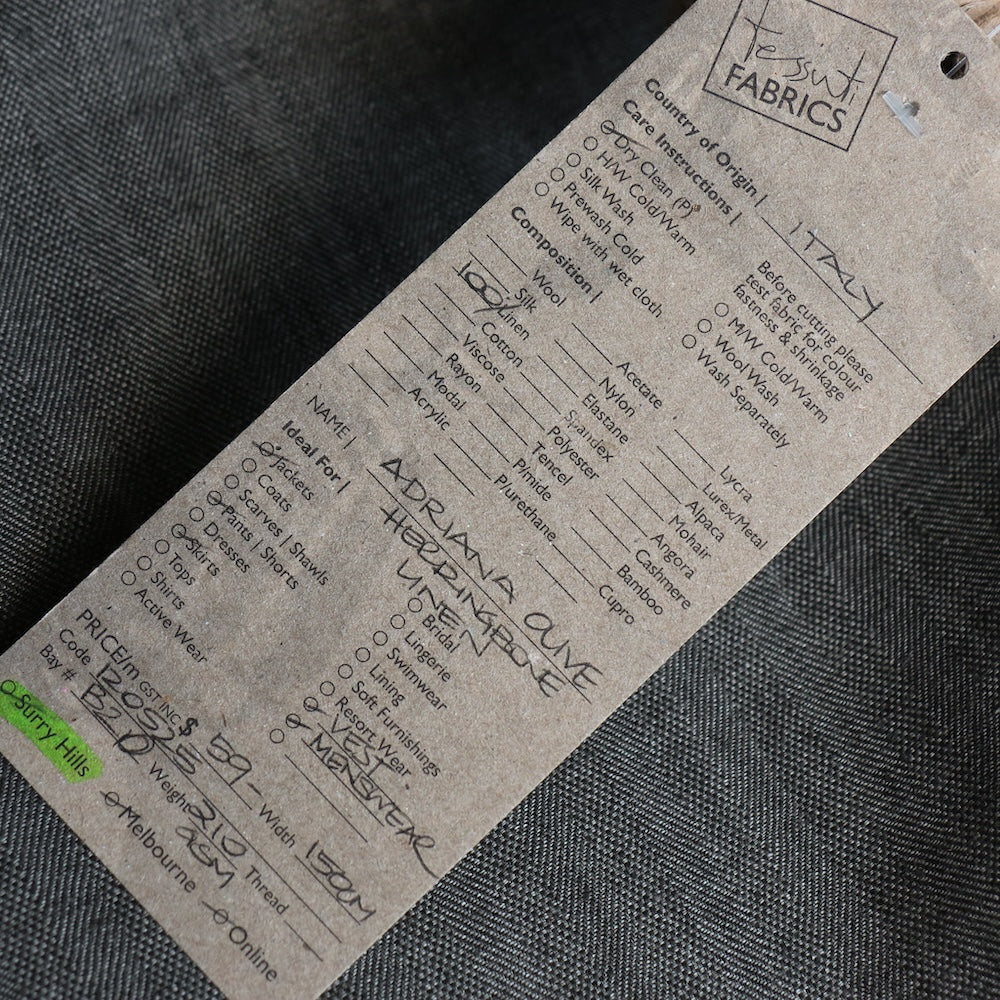 tessuti
FABRICS
Country of Origin | ITALY
Care Instructions |
Dry Clean (P)
H/W Cold/Warm
Silk Wash
Prewash Cold
Wipe with wet cloth
Before cutting please
test fabric for colour
fastness & shrinkage
M/W Cold/Warm
Wool Wash
Wash Separately
Composition |
Wool
Silk
100% Linen
Cotton
Viscose
Rayon
Modal
Acrylic
Acetate
Nylon
Elastane
Spandex
Polyester
Tencel
P/mide
P/urethane
Lycra
Lurex/Metal
Alpaca
Mohair
Angora
Cashmere
Bamboo
Cupro
NAME | ADRIANA OLIVE
HERRINGBONE
LINEN
Ideal For |
Jackets
Coats
Scarves | Shawls
Pants | Shorts
Skirts
Dresses
Tops
Shirts
Active Wear
Bridal
Lingerie
Swimwear
Lining
Soft Furnishings
Resort Wear
VEST
MENSWEAR
PRICE/m GST INC $ 59- Width 150CM
Code Weight 210 Thread
GSM
Bay # B20
Surry Hills Melbourne Online